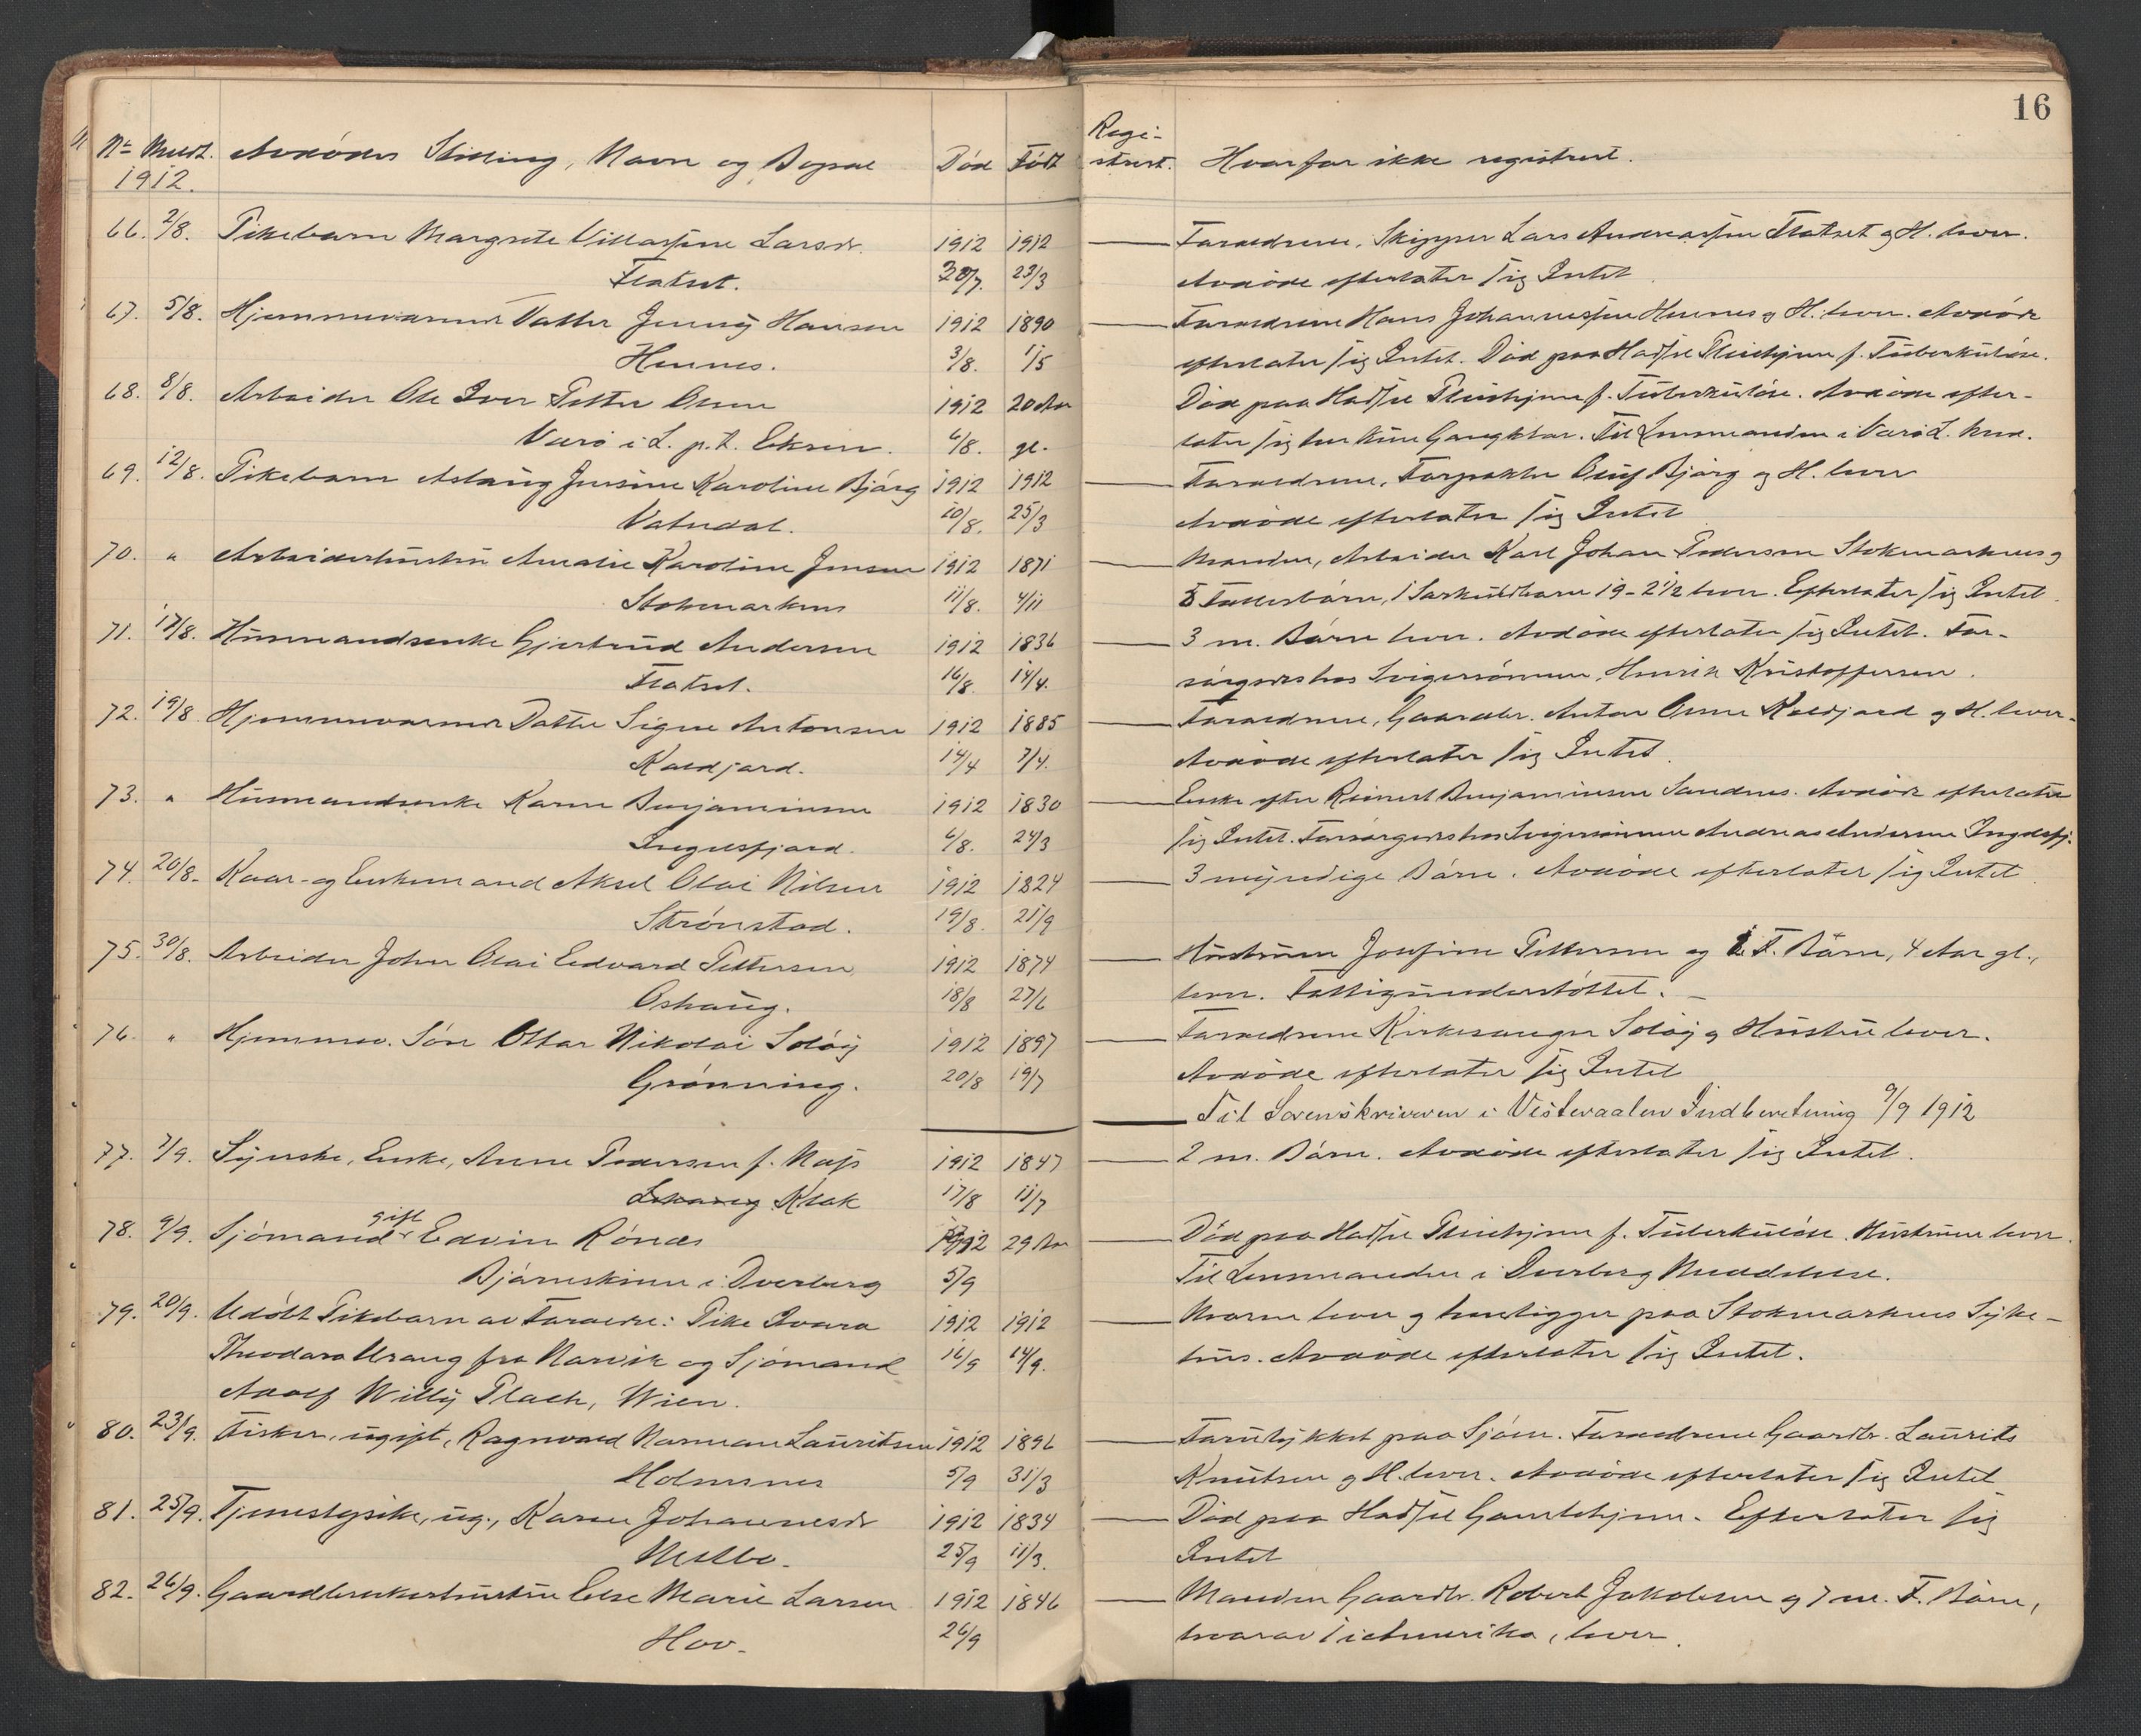 16
Nr Medt. Avdödes Stilling, Navn og Bopæl Död Födt Regi-
strert. Hvorfor ikke registrert.
1912.
66. 2/8. Pikebarn Margrete Villassine Larsdr. 1912 1912 Forældrene, Skipper Lars Andreassen Flatset og H. lever.
Flatset. 30/7. 23/3 Avdöde efterlater sig Intet
67. 5/8. Hjemmeværende Datter Jenny Hansen 1912 1890 Forældrene Hans Johannessen Hennes og H. lever. Avdöde
Hennes. 3/8. 1/5 efterlater sig Intet. Död paa Hadsel Pleiehjem f. Tuberkulose.
68. 8/8. Arbeider Ole Iver Petter Olsen 1912 20 Aar Död paa Hadsel Pleiehjem f. Tuberkulose. Avdöde efter-
Værö i L. p.t. Eksren. 6/8. gl. later sig kun sine Gangklær. Til Lensmanden i Værö L. Med.
69. 12/8. Pikebarn Aslaug Jensine Karoline Björg 1912 1912 Forældrene, Forpakter Oluf Björg og H. lever
Vatndal. 10/8. 25/3 Avdöde efterlater sig Intet
70. " Arbeiderhustru Amalie Karoline Jensen 1912 1871 Manden, Arbeider Karl Johan Pedersen Stokmarknes og
Stokmarknes 11/8. 4/11 8 Fællesbörn, 1 Særkuldbarn 19-2 1/2 lever. Efterlater sig Intet.
71. 17/8. Husmandsenke Gjertrud Andersen 1912 1836 3 m. Börn lever. Avdöde efterlater sig Intet. For-
Flatset. 16/8. 14/4. sörgedes hos Svigersönnen, Henrik Kristoffersen.
72. 19/8. Hjemmeværende Datter Signe Antonsen 1912 1885 Forældrene, Gaardbr. Anton Olsen Kaldjord og H. lever.
Kaldjord. 14/4 7/4. Avdöde efterlater sig Intet.
73. " Husmandsenke Karen Benjaminsen 1912 1830 Enke efter Reinert Benjaminsen Sandnes. Avdöde efterlater
Ingelsfjord. 6/8. 24/3 sig Intet. Forsörgedes hos Svigersönnen Andreas Andersen Ingelsfj.
74. 20/8. Kaar- og Enkemand Aksel Olai Nilsen 1912 1824 3 myndige Börn. Avdöde efterlater sig Intet.
Strönstad. 19/8. 21/9
75. 30/8. Arbeider Johan Olai Edvard Pettersen 1912 1874 Hustruen Josefine Pettersen og 1 F. Barn, 4 Aar gl.,
Oshaug. 18/8 27/6 lever. Fattigunderstöttet.
76. " Hjemmev. Sön Ottar Nikolai Solöy 1912 1897 Forældrene Kirkesanger Solöy og Hustru lever.
Grönning. 20/8 19/7 Avdöde efterlater sig Intet
Til Sorenskriveren i Vesteraalen Indberetning 9/9 1912
77. 7/9. Syerske, Enke, Anne Pedersen f. Næss 1912 1847 2 m. Börn. Avdöde efterlater sig Intet.
Klak 17/8 11/7
78. 9/9. Sjömand gift Edvin Rönæs 1912 29 Aar Död paa Hadsel Pleiehjem f. Tuberkulose. Hustruen lever.
Bjørnskinn i Dverberg 5/9 Til Lensmanden i Dverberg Meddelelse.
79. 20/9. Udöbt Pikebarn av Forældre: Pike Ovara 1912 1912 Moren lever og henligger paa Stokmarknes Syke-
Theodora Urang fra Narvik og Sjömand 16/9 14/9. hus. Avdöde efterlater sig Intet.
Adolf Willy Plach, Wien.
80. 23/9. Fisker, ugift, Ragnvald Norman Lauritsen 1912 1896 Forulykket paa Sjöen. Forældrene Gaardbr. Laurits
Holmsnes 5/9 31/3 Knutsen og H. lever. Avdöde efterlater sig Intet
81. 25/9. Tjenestepike, ug., Karen Johannesdr 1912 1834 Död paa Hadsel Gamlehjem. Efterlater sig
Melbo. 25/9 11/3. Intet
82. 26/9. Gaardbrukerhustru Else Marie Larsen 1912 1846 Manden Gaardbr. Robert Jakobsen og 7 m. F. Börn,
Hov. 26/9 hvorav 1 i Amerika, lever.